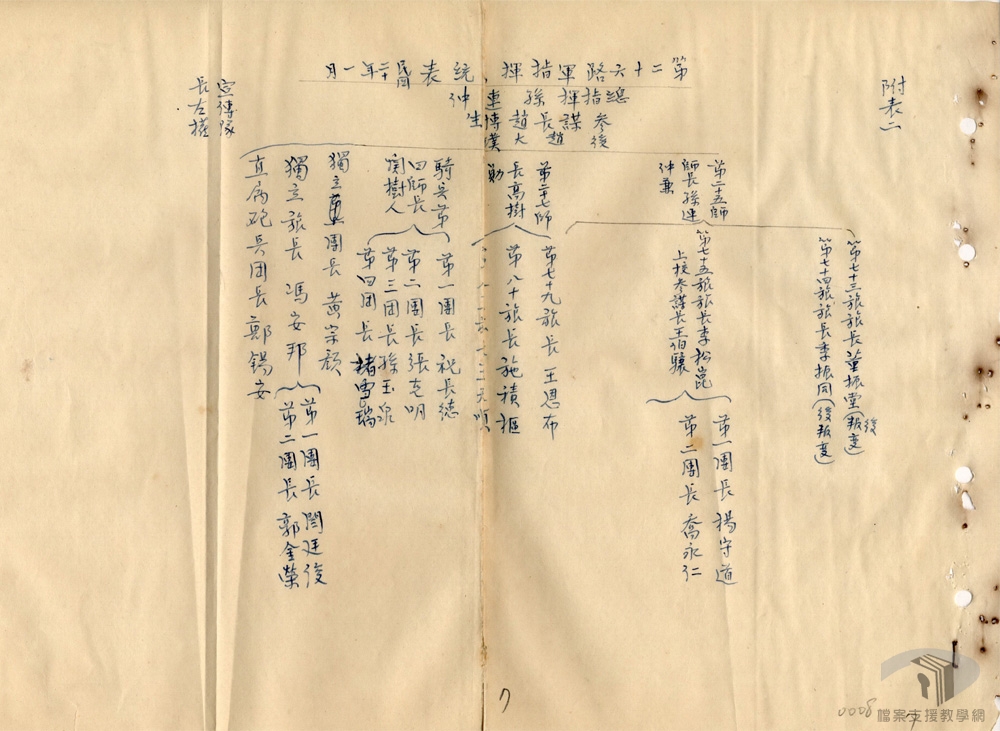 附表二
第二十六路軍指揮 統表 民國二十年一月
總指揮 孫連仲
參謀長 趙博生
後 趙大璞
宣傳隊
長左權
第二十五師
師長孫連
仲兼
第七十三旅旅長董振堂(後叛變)
第七十四旅旅長季振同(後叛變)
第七十五旅旅長李松崑
上校參謀長王伯驤
第一團長 楊守道
第二團長 喬永仁
第二十七師
長高樹
勛
第七十九旅長王恩布
第八十旅長施積樞
騎兵第
四師長
關樹人
第一團長祝長德
第二團長張克明
第三团長孫玉泉
第四团長褚雪瑞
獨立團長 黃宗顏
獨立旅長 馮安邦
第一團長閻廷俊
第二團長郭金榮
直屬砲兵团長鄭錫安
7
0008
檔案支援教學網